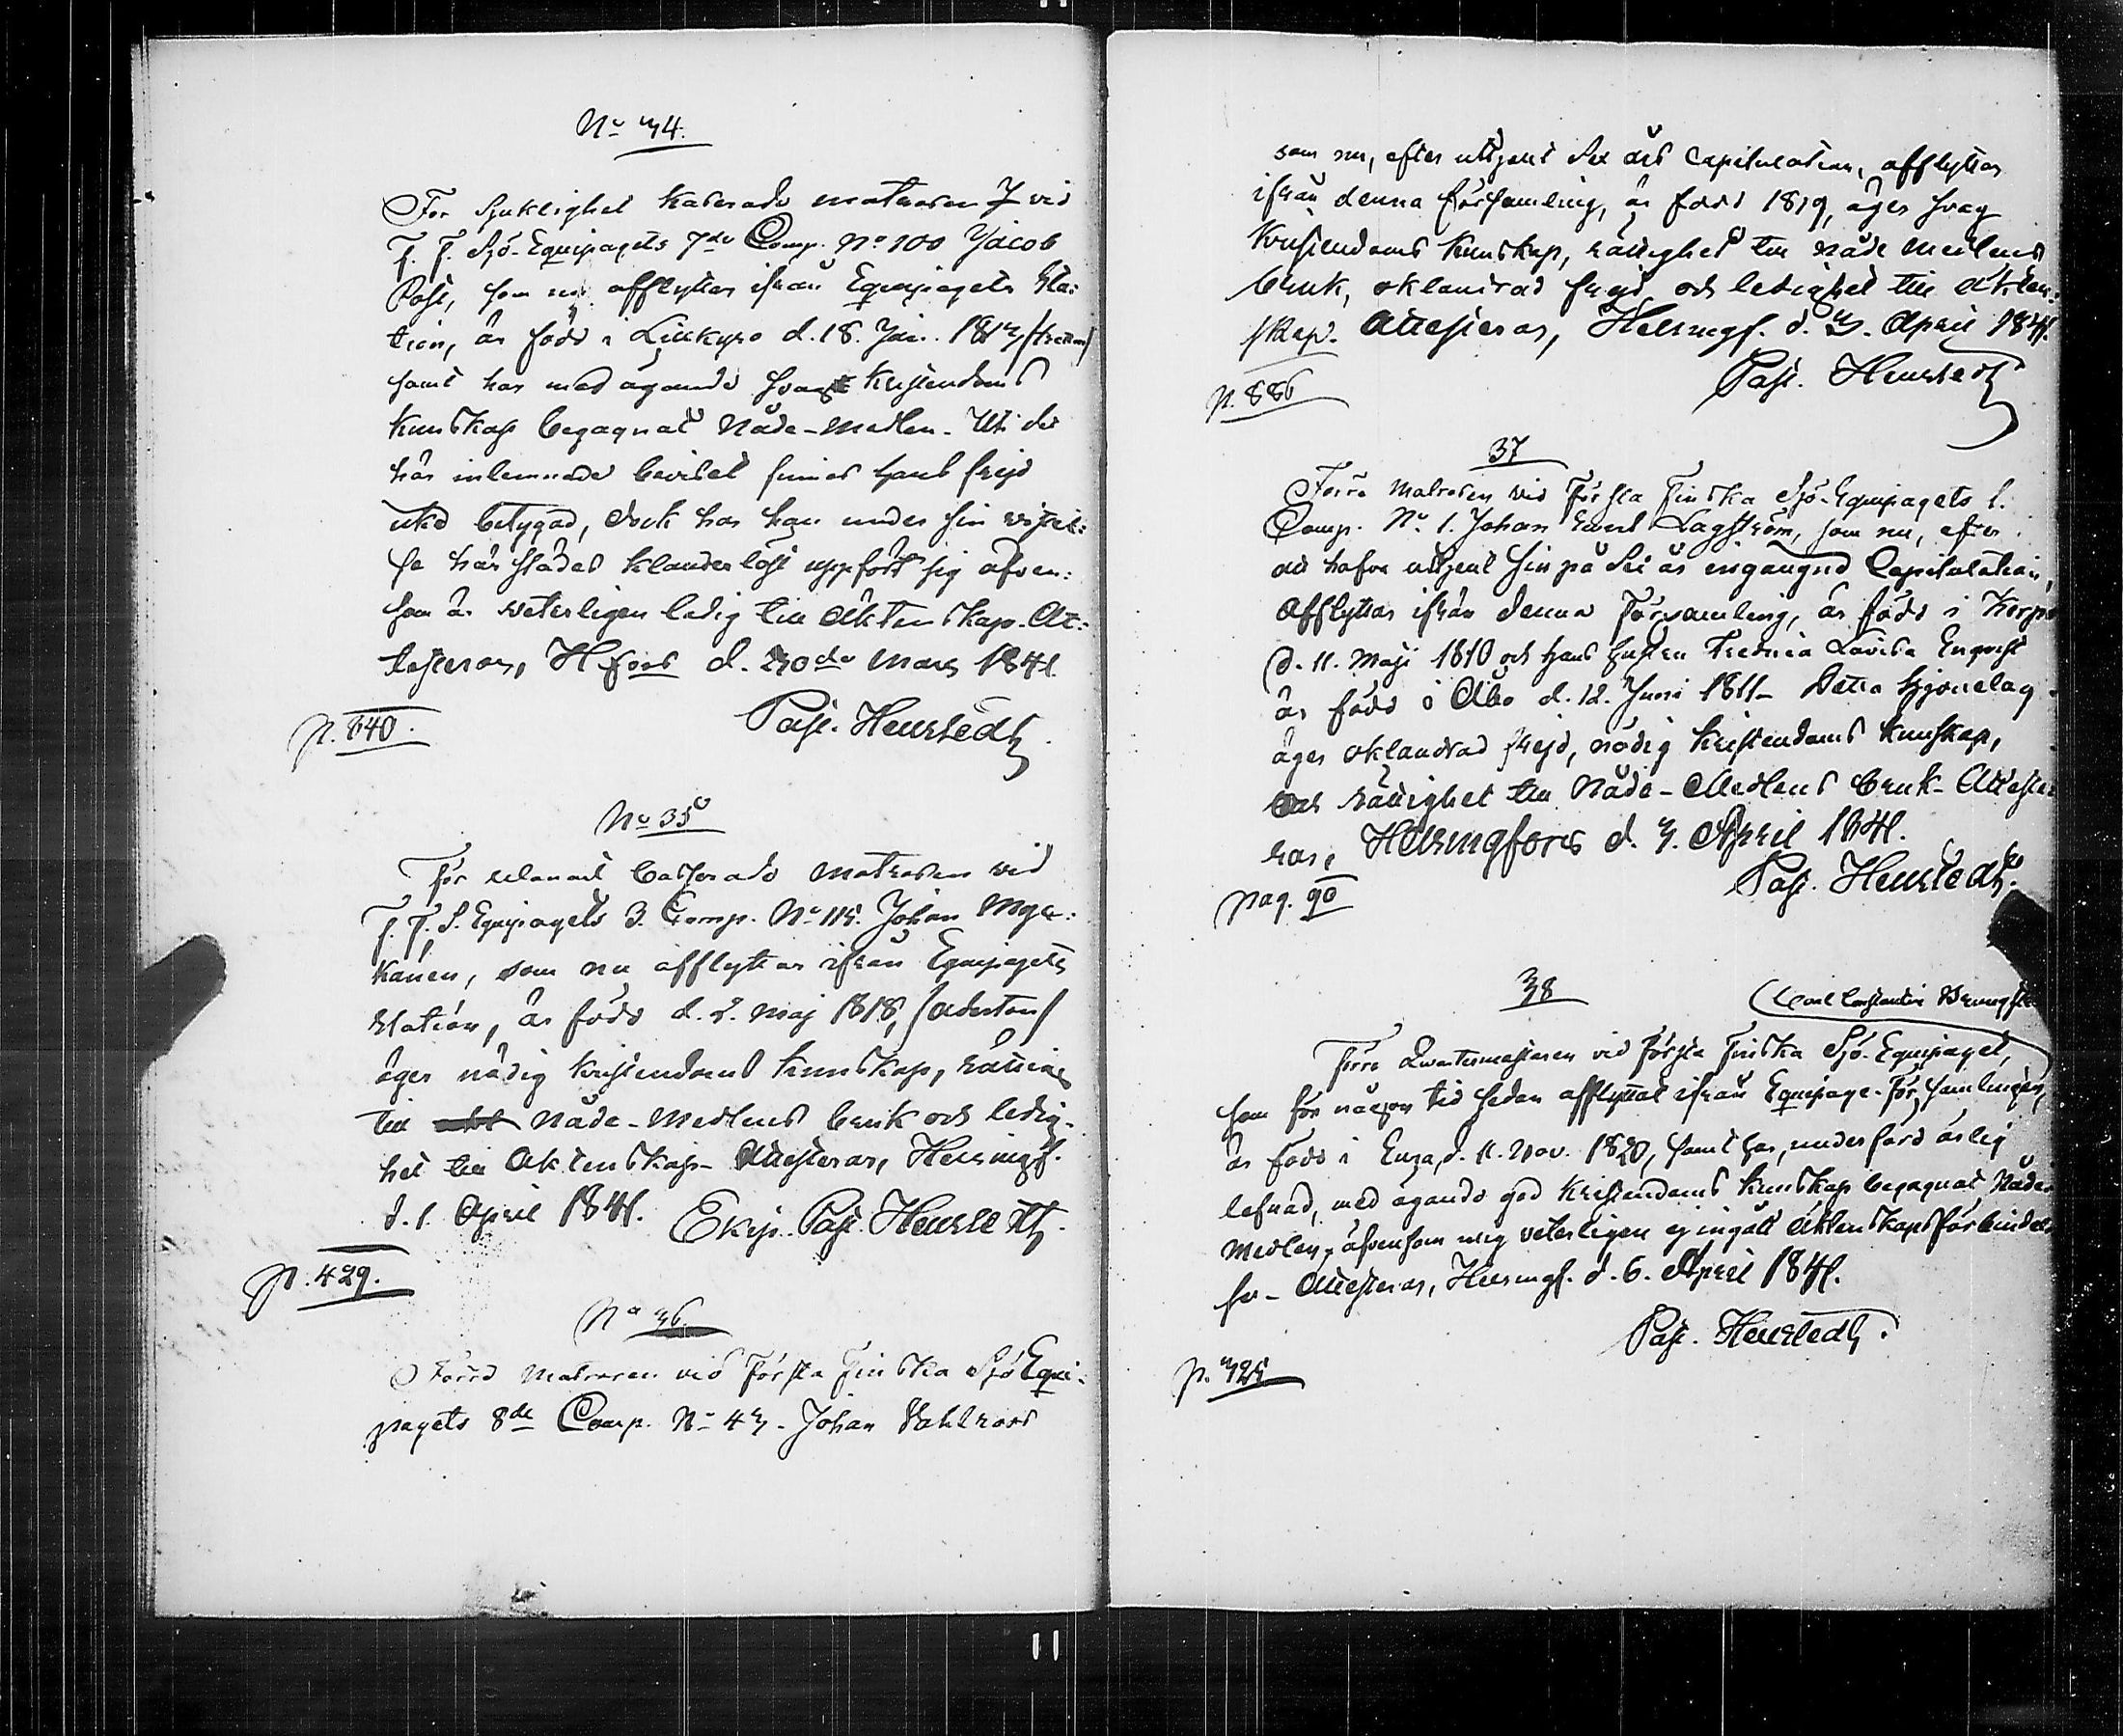 No 34.
För Sjuklighet kasserade matrosen vid
F. F. Sjö-Equipagets 7de Comp. No 100 Jacob
Post, som nu afflyttar ifrån Equipagets Sta:
tion, är född i Lillkyro d. 18. Jan. 1813 /tretton/
samt har med ägande svag Kristendoms
kunskap begagnat Nåde-medlen. Uti det
här inlemnade beviset finnes hans frejd
obetygad, dock har han under sin vistel:
se härstädes klanderlöst uppfört sig äfven:
som är veterligen ledig till Äktenskap. At:
testeras, Hfors d. 30de Mars 1841.
Past. Heurstedt.
p. 840.
No 35
För casserade matrosen vid
F. F. S. Equipagets 3. Comp. No 115. Johan
känen, som nu afflyttar ifrån Equipagets
Station, är född d. 2. Maj 1818, /aderton/
äger nödig kristendoms kunskap,
till Nåde-Medlens bruk och ledig-
het till Äktenskap- Attesteras, Helsingf.
d. 1. April 1841. Ekip. Past. Heurstedt.
p. 429.
No 36.
Förre Matrosen vid Första Finska Sjö Equi-
pagets 8de Comp. No 43. Johan Vahlroos
som nu, efter uttjent Sex års Capitulation, afflyttar
ifrån denna församling, är född 1819, äger svag
Kristendoms kunskap, rättighet till nåde medlens
bruk, oklandrad frejd och ledighet till äkten:
skap. Attesteras, Helsingf. d. 3. April 1841.
Past. Heurstedt
p. 886
37
Förre Matrosen vid Första Finska Sjö-Equipagets 1.
Comp. No 1. Johan Lagström, som nu, efter
att hafva uttjent sin på Sex år ingångna Capitulation,
afflyttar ifrån denna Församling, är född i Korpo
d. 11. Maji 1810 och hans hustru Fredrica Lovisa Enqvist
är född i Åbo d. 12. Juni 1811- Detta Hjonelag
äger oklandrad frejd, nödig kristendoms kunskap,
och rättighet till Nåde-Medlens bruk- Atteste
ras, Helsingfors d. 3. April 1841.
Past. Heurstedt.
pag. 90
38
Carl Constantin
Förre Quartermästaren vid första Finska Sjö-Equipaget,
som för någon tid sedan afflyttat ifrån Equipage-Församlingen,
är född i d. 11. Nov. 1820, samt har, under förd ärlig
lefnad, med ägande god Kristendoms kunskap begagnat Nåde
Medlen, äfvensom mig veterligen ej ingått äktenskapsförbindel
se- Attesteras, Helsingf. d. 6. April 1841.
Past. Heurstedt.
p. 325